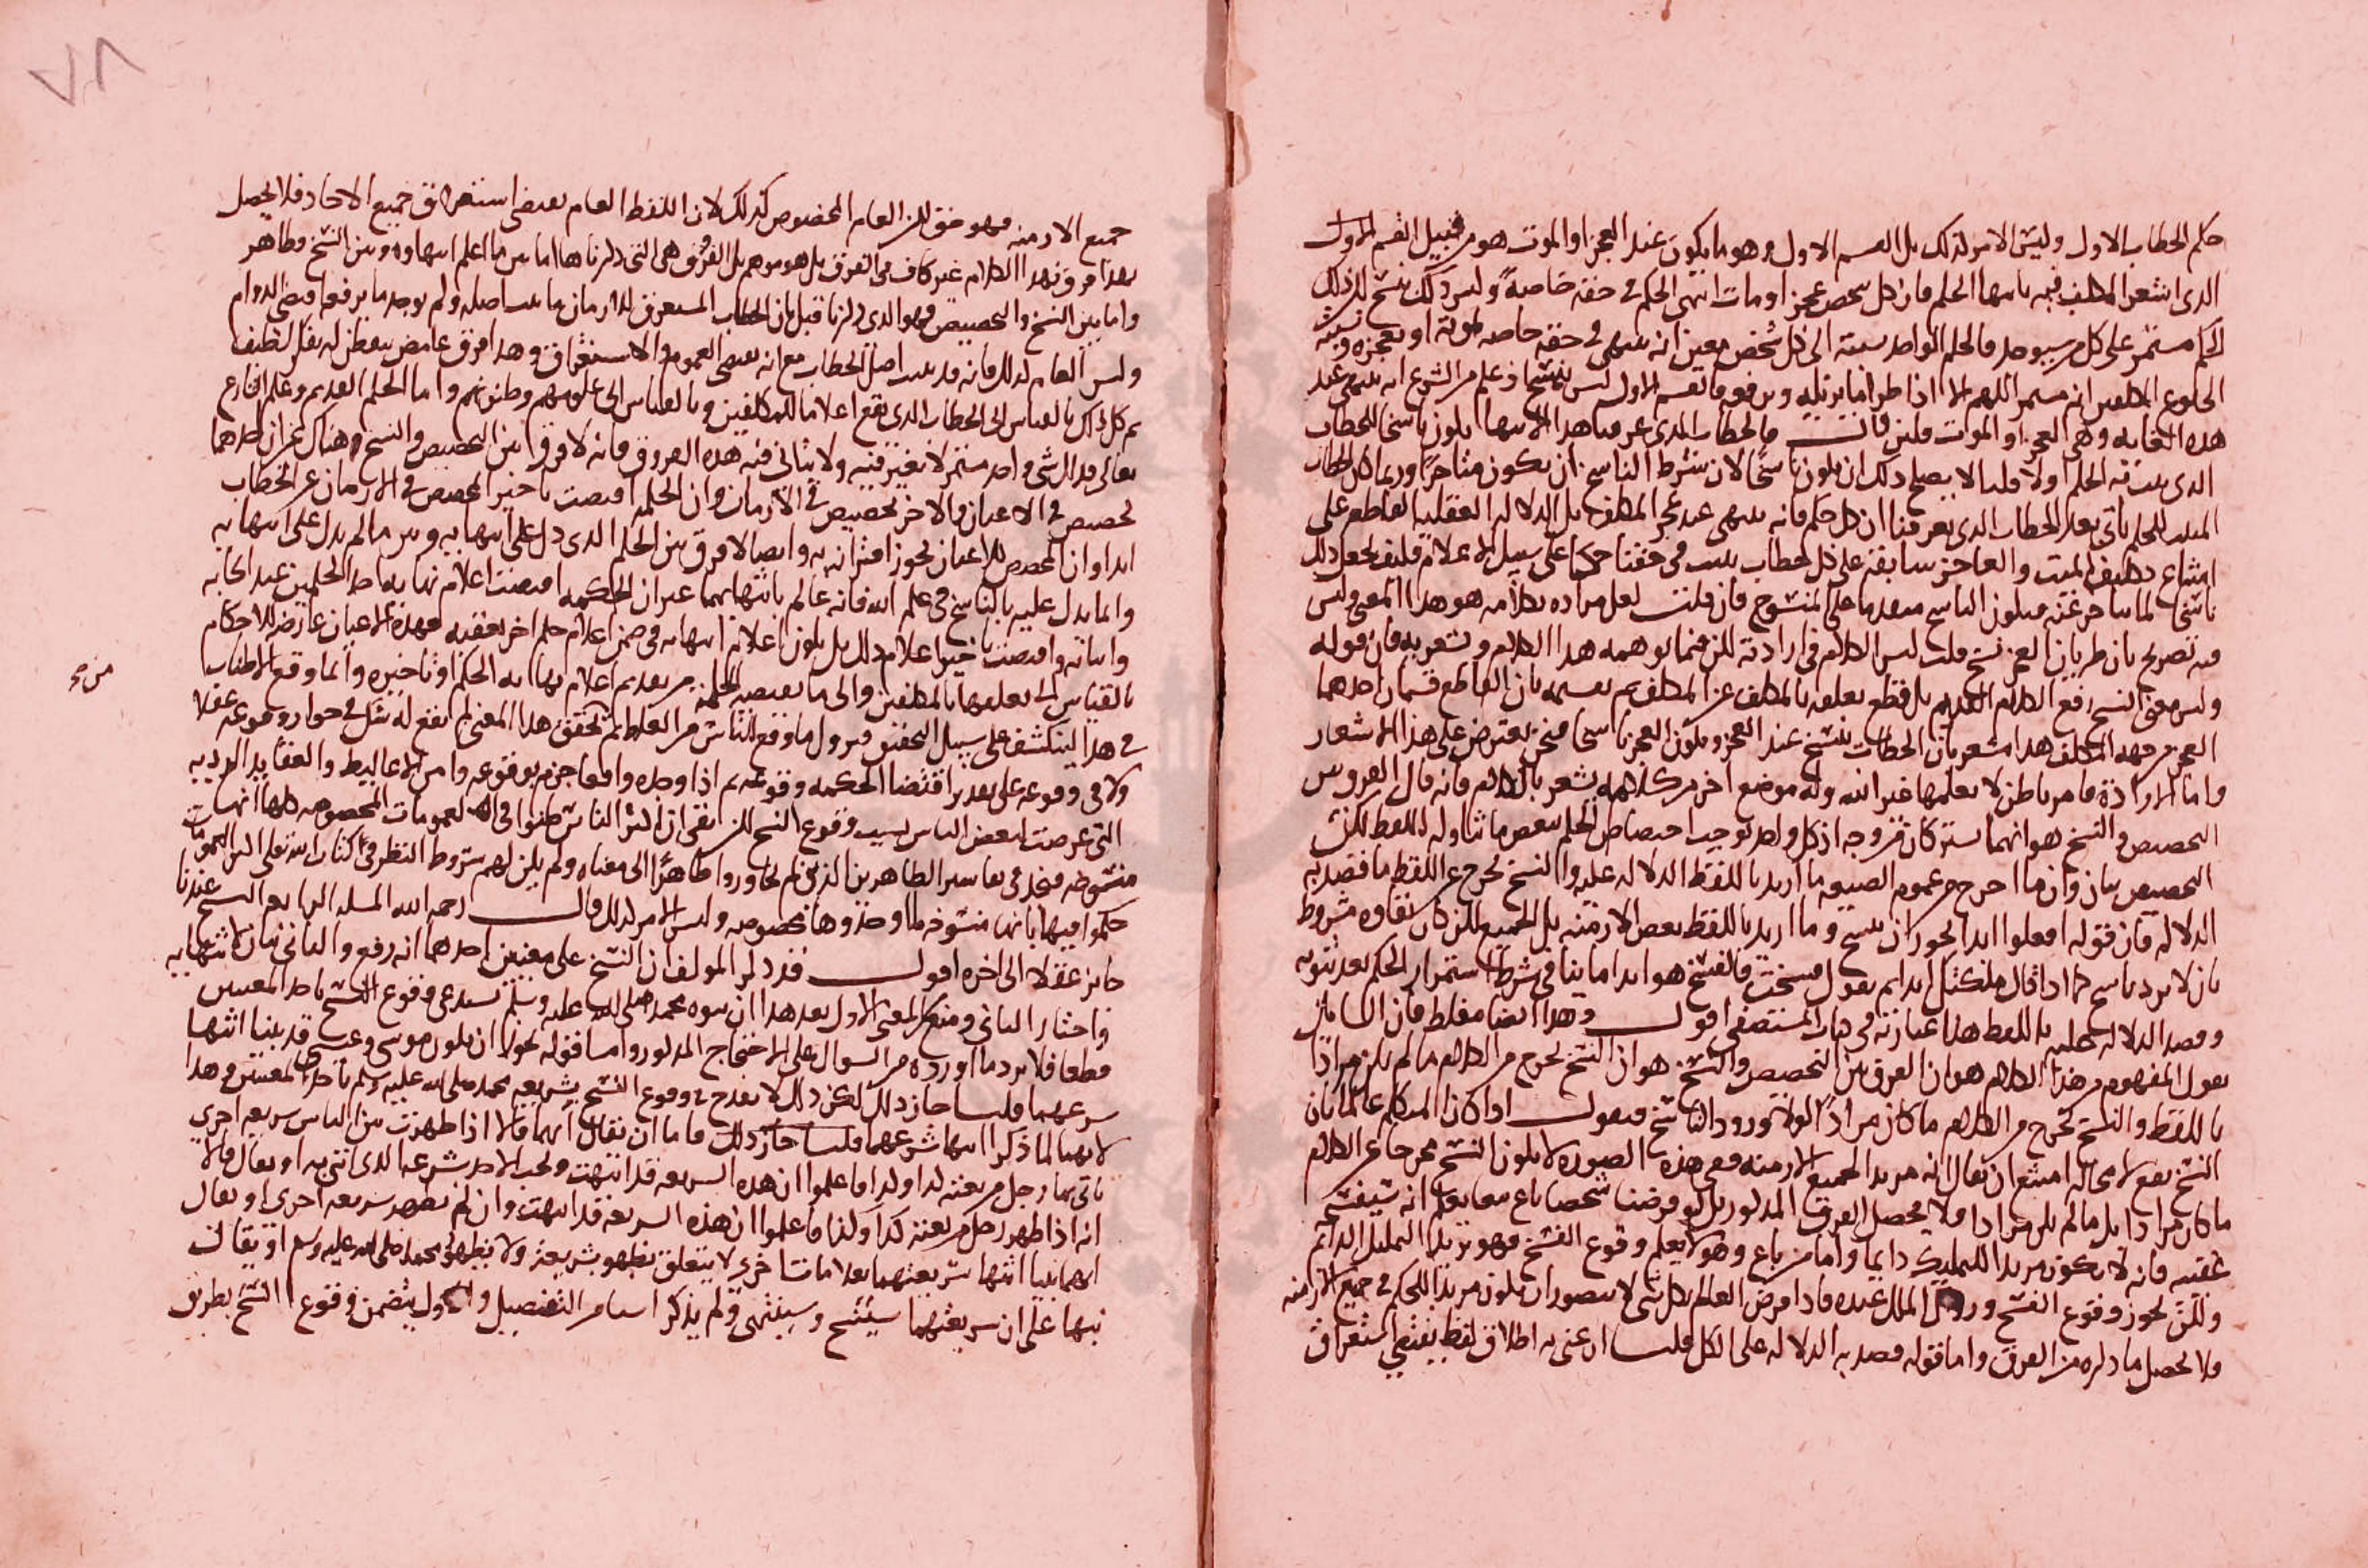 حكم الخطاب الاول وليس الامر كذلك بل القسم الاول وهو ما يكون عند العجز او الموت هو من قبيل القسم الاول
الذي اشعر المكلف فيه بانتهاء الحكم فان كل شخص عجز او مات انتهى الحكم في حقه خاصة وليس ذلك بنسخ لان ذلك
الحكم مستمر على كل من سيوجد فالحكم الواحد نسبته الى كل شخص معين انه ينتهي في حقه خاصة بموته او بعجزه ونسبته
الى المكلفين انه مستمر اللهم الا اذا طرا ما يزيله ويرفعه فالقسم الاول ليس بنسخ اذ علم من الشرع انه ينتهي عند
هذه الغاية وهي العجز او الموت فلين قالت فالخطاب الذي عرفنا هذا الانتها يكون ناسخا للخطاب
الذي يثبت به الحكم اولا قلنا لا يصلح ذلك ان يكون ناسخا لان شرط الناسخ ان يكون متاخرا وربما كان الخطاب
المثبت للحكم ياتي بعد الخطاب الذي يعرفنا ان كل حكم فانه ينتهي عند عجز المكلف بل الدلالة العقلية القاطع على
امتناع تكليف الميت والعاجز سابقة على كل خطاب يثبت في حقنا حكما على سبيل الاعلام فكيف يجعل ذلك
ناسخا لما تاخر عنه فيكون الناسخ متقدما على المنسوخ فان قلت لعل مراده بكلامه هو هذا المعنى وليس
فيه تصريح بان طريان العجز نسخ قلت ليس الكلام في ارادته لكن فيما يوهمه هذا الكلام ويشعر به فان قوله
وليس معنى النسخ رفع الكلام القديم بل قطع تعلقه بالمكلف عن المكلف ثم تقسيمه بان القاطع قسمان احدهما
العجز من جهة المكلف هذا مشعر بان الخطاب ينسخ عند العجز ويكون العجز ناسخا فنحن نعترض على هذا الاشعار
واما الارادة فامر باطن لا يعلمها غير الله وله موضع اخر من كلامه يشعر بالكلام فانه قال الفرق بين
التخصيص والنسخ هو انهما يشتركان من وجه اذ كل واحد يوجب اختصاص الحكم ببعض ما تناوله اللفظ لكن
التخصيص بيان وان ما اخرج من عموم الصيغة ما اريد باللفظ الدلالة عليه والنسخ يخرج عن اللفظ ما قصد به
الدلالة فان قوله افعلوا ابدا يجوز ان ينسخ وما اريد باللفظ بعض الازمنة بل الجميع لكن كان بقاوه مشروط
بان لا يرد ناسخ كما اذا قال ملكتك ابدا ثم يقول فسخت فالفسخ هو ابدا ما ينافي شرط استمرار الحكم بعد ثبوته
وقصد الدلالة عليه باللفظ هذا عبارته في كتاب المستصفى اقول وهذا ايضا مغلط فان السابق
يقول المفهوم من هذا الكلام هو ان الفرق بين التخصيص والنسخ هو ان النسخ يخرج من الكلام ما لم يكن مرادا
باللفظ والنسخ يخرج من الكلام ما كان مرادا لولا ورود الناسخ فنقول اذا كان المتكلم عالما بان
النسخ يقع لا محالة امتنع ان يقال انه مريد لجميع الازمنة ففي هذه الصورة لا يكون النسخ مخرجا عن الكلام
ما كان مرادا بل ما لم يكن مرادا فلا يحصل الفرق المذكور بل لو فرضنا شخصا باع بيعا يعلم انه سيفسخ
عقيبه فانه لا يكون مريدا للتمليك دايما واما من باع وهو لا يعلم وقوع الفسخ فهو يريد التمليك الدايم
ولكن يجوز وقوع الفسخ وروال الملك عنده فاذا فرض العالم بكل شي لا يتصور ان يكون مريدا للحكم في جميع الازمنة
ولا يحصل ما ذكره من الفرق واما قوله قصد به الدلالة على الكل قلنا ان عنى به اطلاق لفظ يقتضي استغراق
جميع الازمنة فهو حق لكن العام المخصوص كذلك لان اللفظ العام يقتضي استغراق جميع الاحاد فلا يحصل
بهذا فرق فهذا الكلام غير كاف في الفرق بل هو موهم بل الفروق هي التي ذكرناها اما بين ما اعلم انتهاوه وبين النسخ فظاهر
واما بين النسخ والتخصيص فهو الذي ذكرنا قبل بان الخطاب المستغرق للازمان ما يثبت اصله ولم يوجد ما يرفعه اقتضى الدوام
وليس العام كذلك فانه قد يثبت اصل الخطاب مع انه يقتضي العموم والاستغراق وهذا فرق غامض يتفطن له بفكر لطيف
ثم كل ذلك بالقياس الى الخطاب الذي يقع اعلاما للمكلفين وبالقياس الى علومهم وظنونهم واما الحكم القديم وعلم البارئ
تعالى فذلك شي واحد مستمر لا يتغير فيه ولا يتاتى فيه هذه الفروق فانه لا فرق بين التخصيص والنسخ وهناك غير ان احدهما
تخصيص في الاعيان والاخر تخصيص في الازمان وان الحكمة اقتضت تاخير المخصص في الازمان عن الخطاب
ابدا وان المخصص للاعيان يجوز اقترانه به وايضا لا فرق بين الحكم الذي دل على انتهايه وبين ما لم يدل على انتهايه
وانما يدل عليه بالناسخ في علم الله فانه عالم بانتهايهما غير ان الحكمة اقتضت اعلام نهاية احد الحكمين عند ايجابه
واثباته واقتضت تاخير اعلام ذلك بل يكون اعلام انتهايه في ضمن اعلام حكم اخر يعقبه فهذه الاعيان عارضة للاحكام
بالقياس الى تعلقها بالمكلفين والى ما تقتضيه الحكمة من تقديم اعلام نهاية الحكم او تاخيره وانما وقع الاطناب
من صح
في هذا لينكشف على سبيل التحقيق فيزول ما وقع للناس من الغلط ثم تحقق هذا المعنى لم يقع له شك في جوازه وقوعه عقلا
ولا في وقوعه على تقدير اقتضا الحكمة وقوعه ثم اذا وجده واقعا جزم بوقوعه وامن الاغاليط والعقايد الردية
التي عرضت لبعض الناس بسبب وقوع النسخ لكن بقي ان اكثر الناس ظنوا في العمومات المخصوصة كلها انها
منسوخة فنجد في تفاسير الظاهريين الذين لم يجاوزوا ظاهرا الى معناه ولم يكن لهم شروط النظر في كتاب الله تعالى اكثر العمومات
حكموا فيها بانها منسوخة ما وجدوها مخصوصة وليس الامر كذلك قال رحمه الله المسلة الرابعة النسخ عندنا
جايز عقلا الى اخره اقول قد ذكر المولف ان النسخ على معنيين احدهما انه رفع والثاني بيان لانتهايه
واختار الثاني ومنع المعنى الاول بعد هذا ان نبوه محمد صلى الله عليه وسلم تستدعي وقوع النسخ باحد المعنيين
قطعا فلا يرد ما اورده من السوال على الاحتجاج المذكور واما قوله يجوز ان يكون موسى وعيسى قد بينا انتها
شرعهما قلنا جاز ذلك لكن ذلك لا يقدح في وقوع النسخ بشريعة محمد صلى الله عليه وسلم باحد المعنيين وهذا
لانهما لما ذكرا انتها شرعهما قلنا جاز ذلك فاما ان يقال انهما قالا اذا ظهرت بين الناس شريعة اخرى
ياتي بها رجل من بعثه كذا وكذا فاعلموا ان هذه الشريعة قد انتهت ويجب الاخذ بشرعه الذي اتى به او يقال قالا
انه اذا ظهر رجل من بعثه كذا وكذا فاعلموا ان هذه الشريعة قد انتهت وان لم تظهر شريعة اخرى او يقال
انهما بينا انتها شريعتهما بعلامات اخرى لا يتعلق بظهور شريعة ولا بظهور محمد صلى الله عليه وسلم او يقال
نبها على ان شريعتهما ستنسخ وسينتهي ولم يذكر اسا من التفصيل والاول يتضمن وقوع النسخ بطريق
٧٨